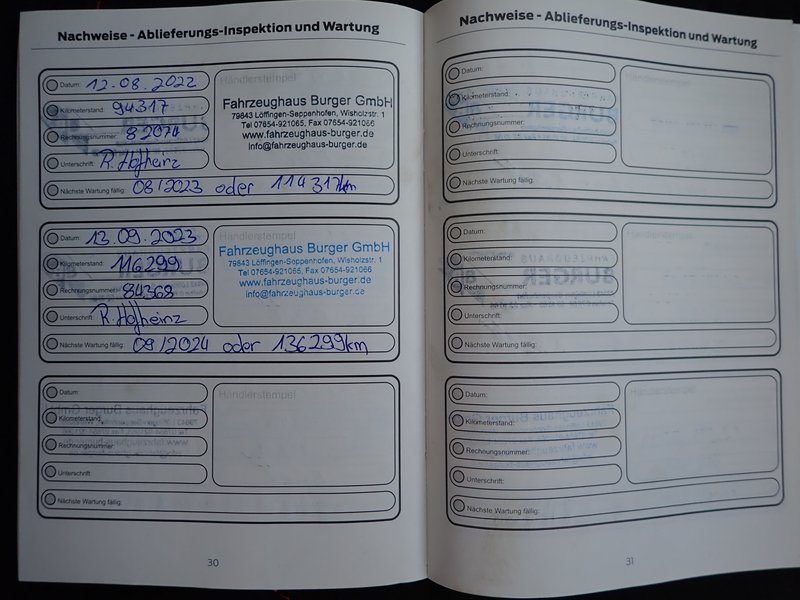 Nachweise - Ablieferungs-Inspektion und Wartung
Datum: 12.08.2022
Kilometerstand: 94317
Rechnungsnummer: 82074
Unterschrift: R. Hofheinz
Nächste Wartung fällig: 08/2023 oder 114317km
Händlerstempel
Fahrzeughaus Burger GmbH
79843 Löffingen-Seppenhofen, Wisholzstr. 1
Tel 07654-921065, Fax 07654-921066
www.fahrzeughaus-burger.de
info@fahrzeughaus-burger.de
Datum: 13.09.2023
Kilometerstand: 116299
Rechnungsnummer: 84368
Unterschrift: R. Hofheinz
Nächste Wartung fällig: 09/2024 oder 136299km
Händlerstempel
Fahrzeughaus Burger GmbH
79843 Löffingen-Seppenhofen, Wisholzstr. 1
Tel 07654-921065, Fax 07654-921066
www.fahrzeughaus-burger.de
info@fahrzeughaus-burger.de
Datum:
Kilometerstand:
Rechnungsnummer:
Unterschrift:
Nächste Wartung fällig:
Händlerstempel
30
Nachweise - Ablieferungs-Inspektion und Wartung
Datum:
Kilometerstand:
Rechnungsnummer:
Unterschrift:
Nächste Wartung fällig:
Händlerstempel
Datum:
Kilometerstand:
Rechnungsnummer:
Unterschrift:
Nächste Wartung fällig:
Händlerstempel
Datum:
Kilometerstand:
Rechnungsnummer:
Unterschrift:
Nächste Wartung fällig:
Händlerstempel
31